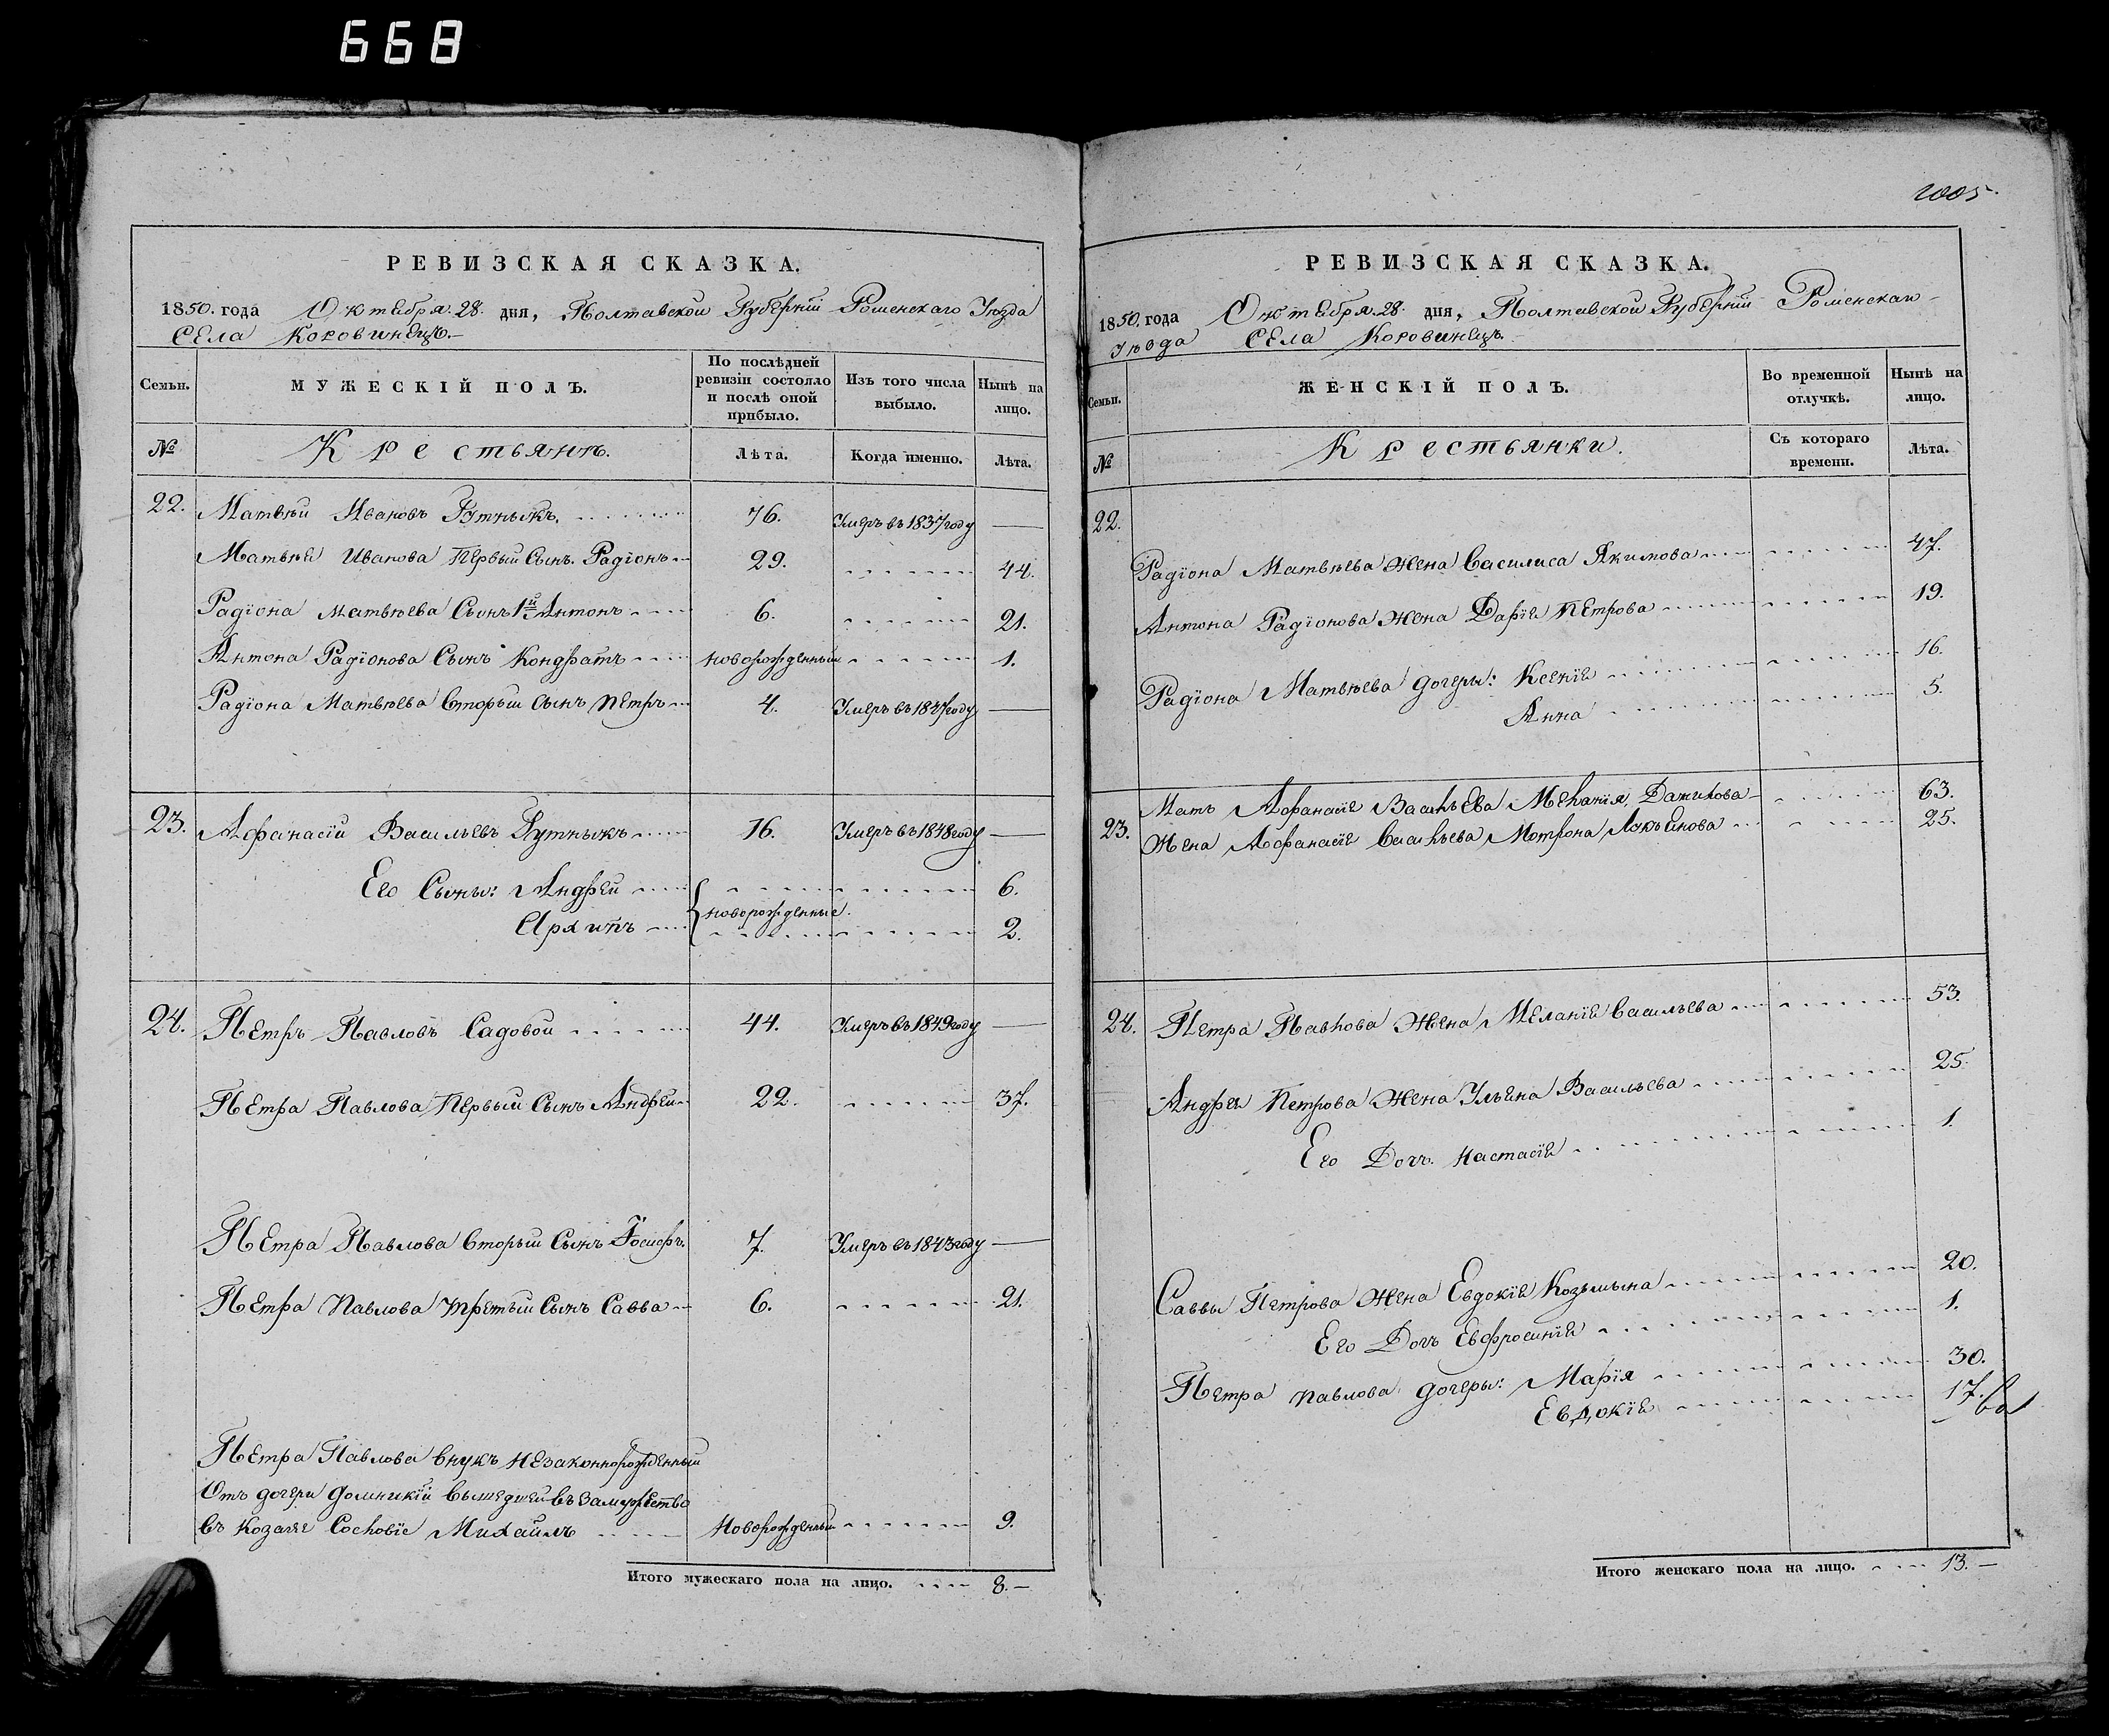 668
РЕВИЗСКАЯ СКАЗКА.
1850. года Октебря. 28. дня, Полтавскои Губерніи Роменскаго Уѣзда
Села Коровинецъ.
Семьи.
МУЖЕСКІЙ ПОЛЪ.
По послѣдней ревизіи состояло и послѣ оной прибыло.
Изъ того числа выбыло.
Нынѣ на лицо.
№
Крестьянъ.
Лѣта.
Когда именно.
Лѣта.
22. Матвѣи Ивановъ Гутныкъ. 76. Умеръ въ 1837 году
Матвѣя Иванова Первыи Сынъ. Радіонъ 29. 44.
Радіона Матвѣева Сынъ 1й Антонъ 6. 21.
Антона Радіонова Сынъ Кондратъ новорожденныи 1.
Радіона Матвѣева Вторыи сынъ Петръ 4. Умеръ въ 1847 году
23. Афанасіи Васильевъ Гутныкъ 16. Умеръ въ 1848 году
Его Сыны: Андреи 6.
новорожденные.
Архипъ 2.
24. Петръ Павловъ Садовои 44. Умеръ въ 1849 году
Петра Павлова Первыи Сынъ Андреи 22. 37.
Петра Павлова Вторыи Сынъ Іосифъ. 7. Умеръ въ 1843 году
Петра Павлова третыи Сынъ Савва 6. 21.
Петра Павлова Внукъ незаконнорожденныи
Отъ дочери Домникіи вышедшеи въ замужество
въ Козачіе Сословіе Михаилъ Новорожденныи 9.
Итого мужескаго пола на лицо. 8.
2005.
РЕВИЗСКАЯ СКАЗКА.
1850. года Октебря. 28. дня, Полтавскои Губерніи Роменскаго
Уѣзда Села Коровинецъ.
Семьи.
ЖЕНСКІЙ ПОЛЪ.
Во временной отлучкѣ.
Нынѣ на лицо.
№
Крестьянки.
Съ котораго времени.
Лѣта.
22.
Радіона Матвѣева Жена Василиса Якимова 47.
Антона Радіонова Жена Даріе Петрова 19.
Радіона Матвѣева дочеры: Ксеніе 16.
Анна 5.
23. Мать Афанасіе Васильева Меланія Данилова 63.
Жена Афанасіе Васильева Мотрона Лукьянова 25.
24. Петра Павлова Жена Меланіе Васильева 53.
Андрея Петрова Жена Ульяна Васильева 25.
Его Дочъ Настасіе 1.
Саввы Петрова Жена Евдокіе Козьмына 20.
Его Дочъ Евфросиніе 1.
Петра Павлова дочеры: Марія 30.
Евдокіе 17.
Итого женскаго пола на лицо. 13.